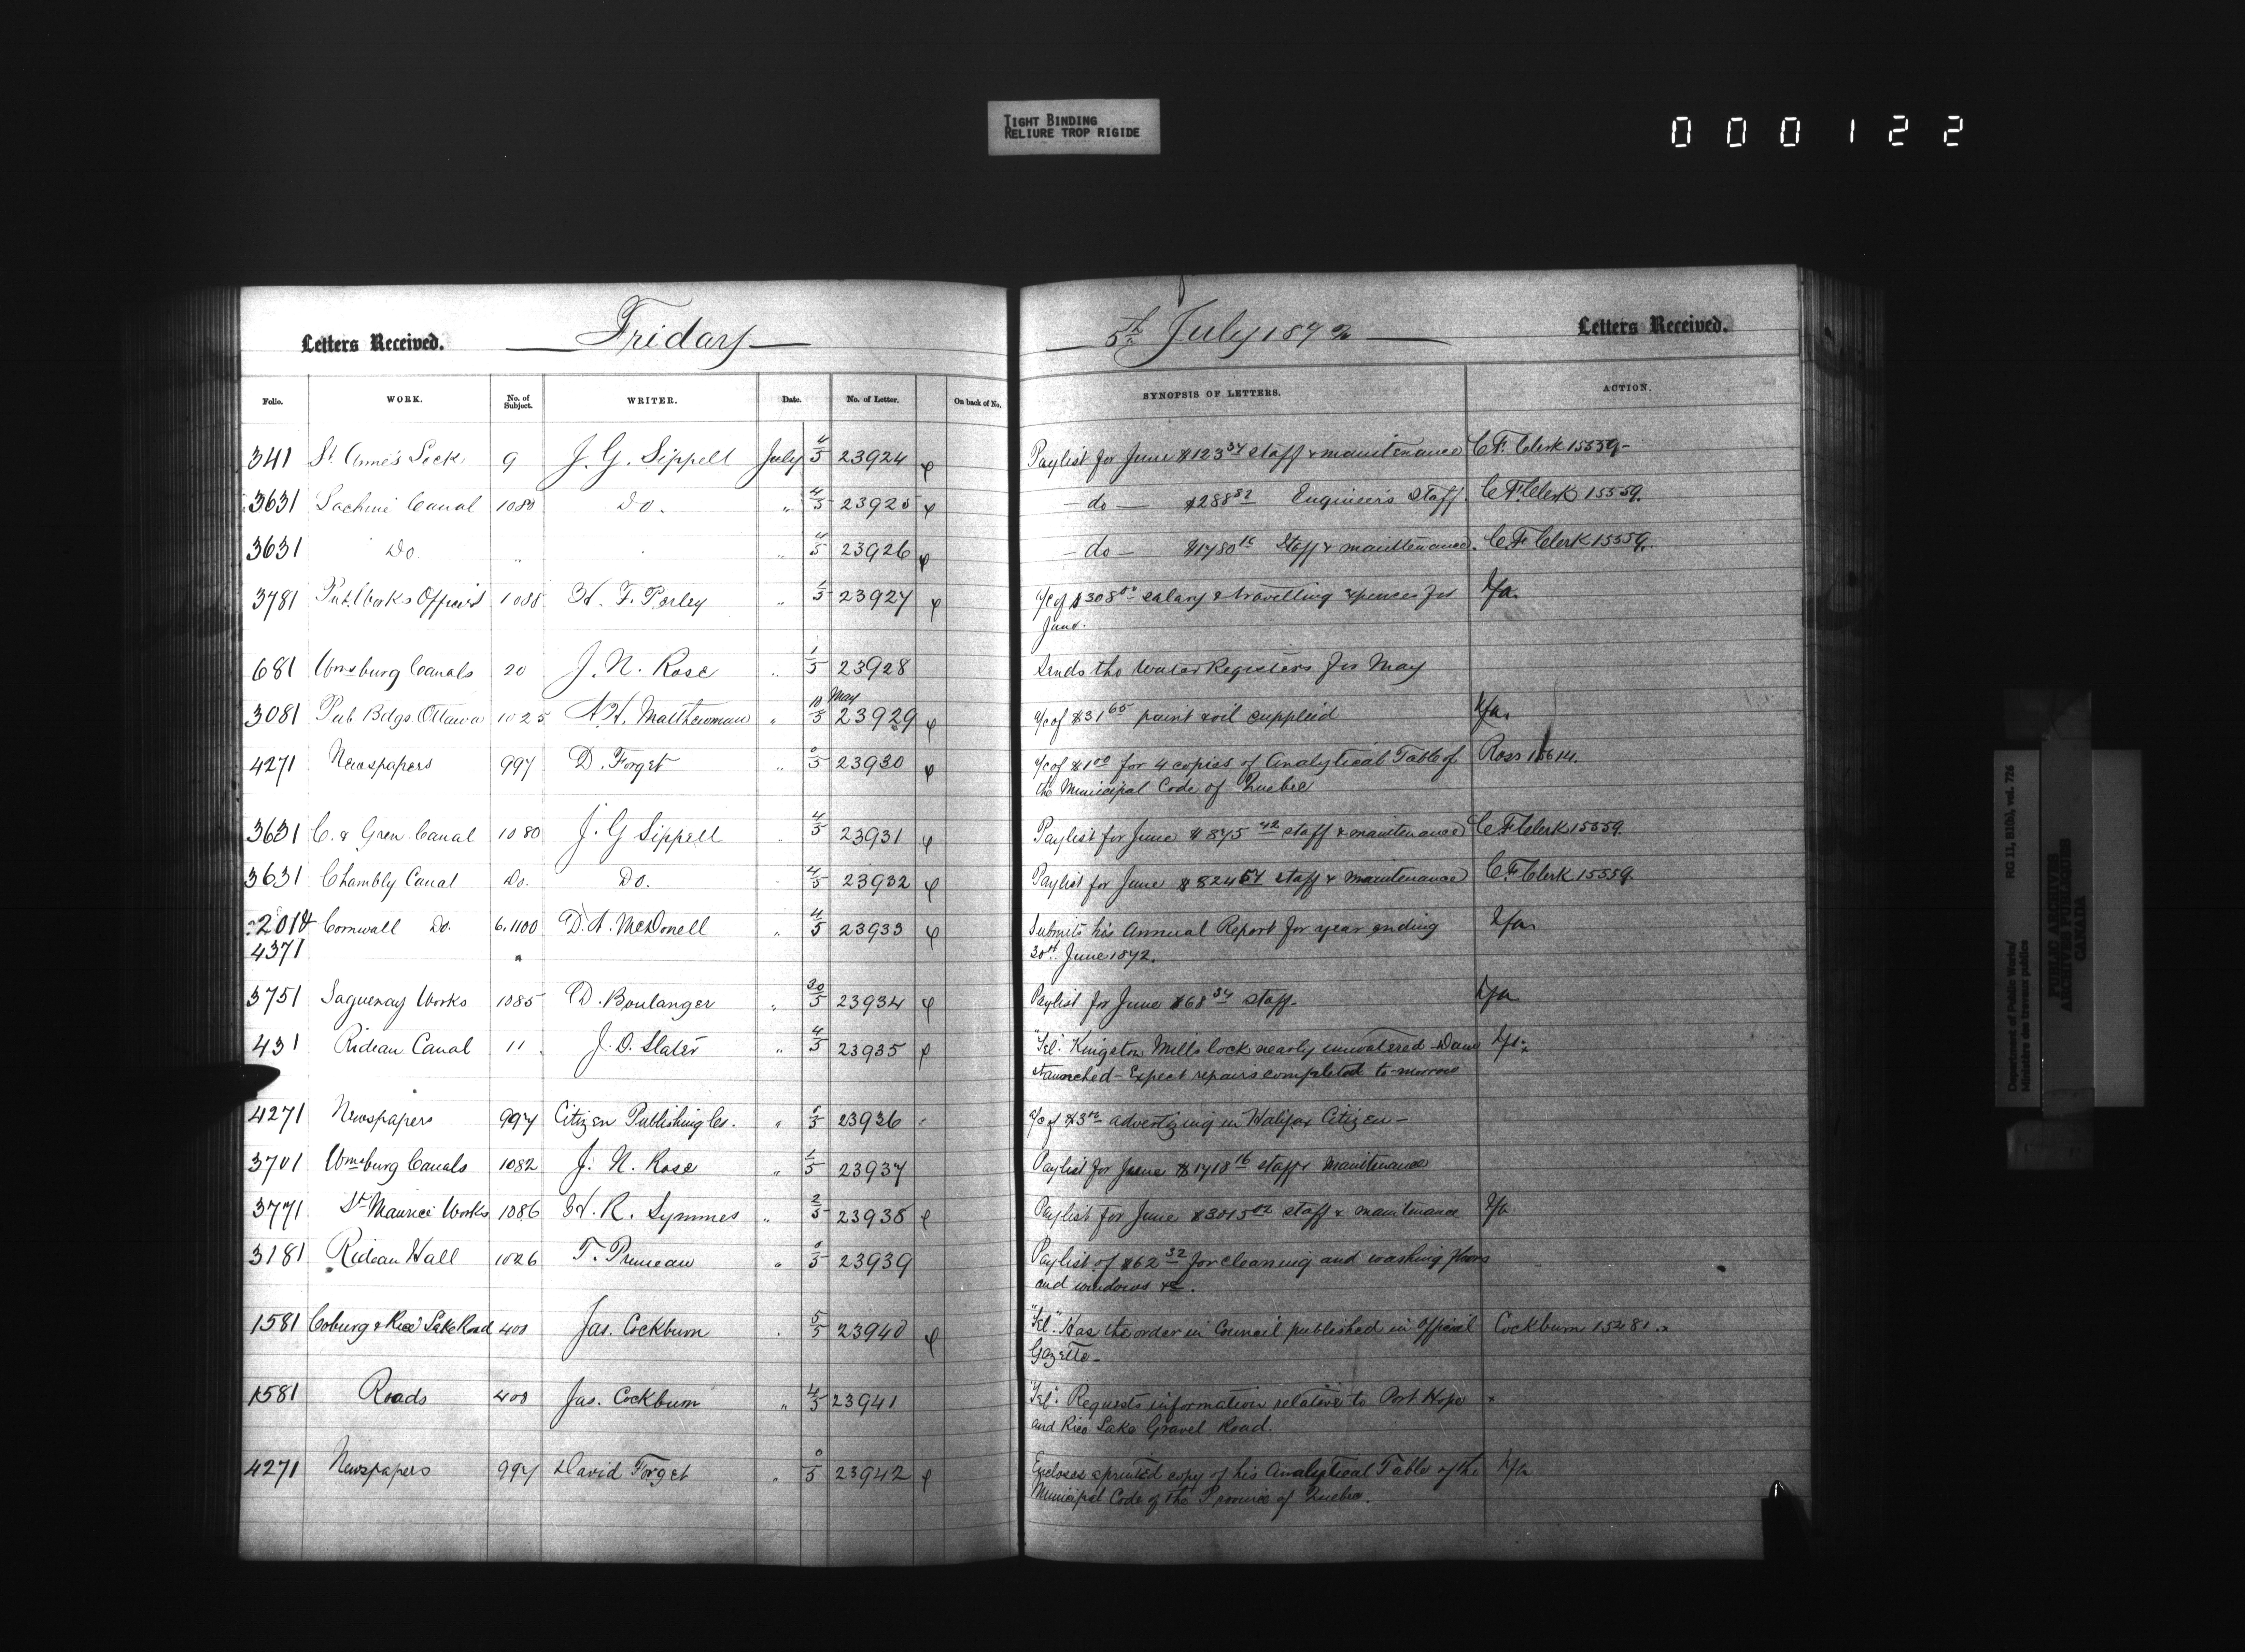 TIGHT BINDING
RELIURE TROP RIGIDE
000122
Letters Received. Friday
5th July 1872 Letters Received.
Folio. WORK. No. of Subject. WRITER. Date. No. of Letter. On back of No. SYNOPSIS OF LETTERS. ACTION.
341 St. Anne's Lock 9 J. G. Sippell July 4/5 23924 Paylist for June $123 34 staff & maintenance C.F. Clerk 15559
3631 Lachine Canal 1080 Do. " 4/5 23925 - do - $288 82 Engineer's Staff. C.F. Clerk 15559.
3631 Do. " " 4/5 23926 - do - $1480 16 Staff & maintenance. C.F. Clerk 15559.
3781 Pub. Works Officers 1088 H. F. Perley " 5 23927 a/c of $308 00 salary & travelling expences for
June.
N/a.
681 Wmsburg Canals 20 J. N. Rose " 1/5 23928 Sends the Water Registers for May
3081 Pub Bdgs Ottawa 1025 Matthewman " May 5 23929 a/c of $31 65 paint & oil supplied N/a.
4271 Newspapers 997 D. Forget " 0/5 23930 a/c of $1 00 for 4 copies of Analytical Table of Ross 15614.
the Municipal Code of Quebec
3631 C. & Gren. Canal 1080 J. G Sippell " 4/5 23931 Paylist for June $845 42 staff & maintenance C.F. Clerk 15559.
3631 Chambly Canal Do. Do. 4/5 23932 Paylist for June $824 54 staff & maintenance C.F. Clerk 15559.
2014 Cornwall Do. 6.1100 D. A. McDonell " 4/5 23933 Submits his Annual Report for year ending N/a
4371 30th. June 1872.
3751 Saguenay Works 1085 D. Boulanger " 30/5 23934 Paylist for June $68 34 staff. N/a
431 Rideau Canal 11 J. D. Slater " 4/5 23935 "Tel". Kingston Mills lock nearly unwatered - Dam N/a
staunched - Expect repairs completed to-morrow
4271 Newspapers 997 Citizen Publishing Co. " 0/5 23936 a/c of $3 advertizing in Halifax Citizen -
3701 Wmsburg Canals 1082 J. N. Rose " 1/5 23937 Paylist for June $1718 16 staff & Maintenance
3771 St. Maurice Works 1086 H. R. Symmes " 2/5 23938 Paylist for June $3015 02 staff & maintenance N/a
3181 Rideau Hall 1026 T. Pruneau " 0/5 23939 Paylist of $62 32 for cleaning and washing floors
and windows &c.
1581 Coburg & Rice Lake Road 400 Jas. Cockburn " 5/5 23940 "Tel". Has the order in Council published in Official Cockburn 15481.
Gazette -
1581 Roads 400 Jas. Cockburn " 4/5 23941 "Tel". Requests information relative to Port Hope x
and Rice Lake Gravel Road.
4271 Newspapers 997 David Forget " 0/5 23942 Encloses a printed copy of his Analytical Table of the N/a
Municipal Code of the Province of Quebec.
Department of Public Works/
Ministère des travaux publics
RG 11, B1(b), vol. 726
PUBLIC ARCHIVES
ARCHIVES PUBLIQUES
CANADA